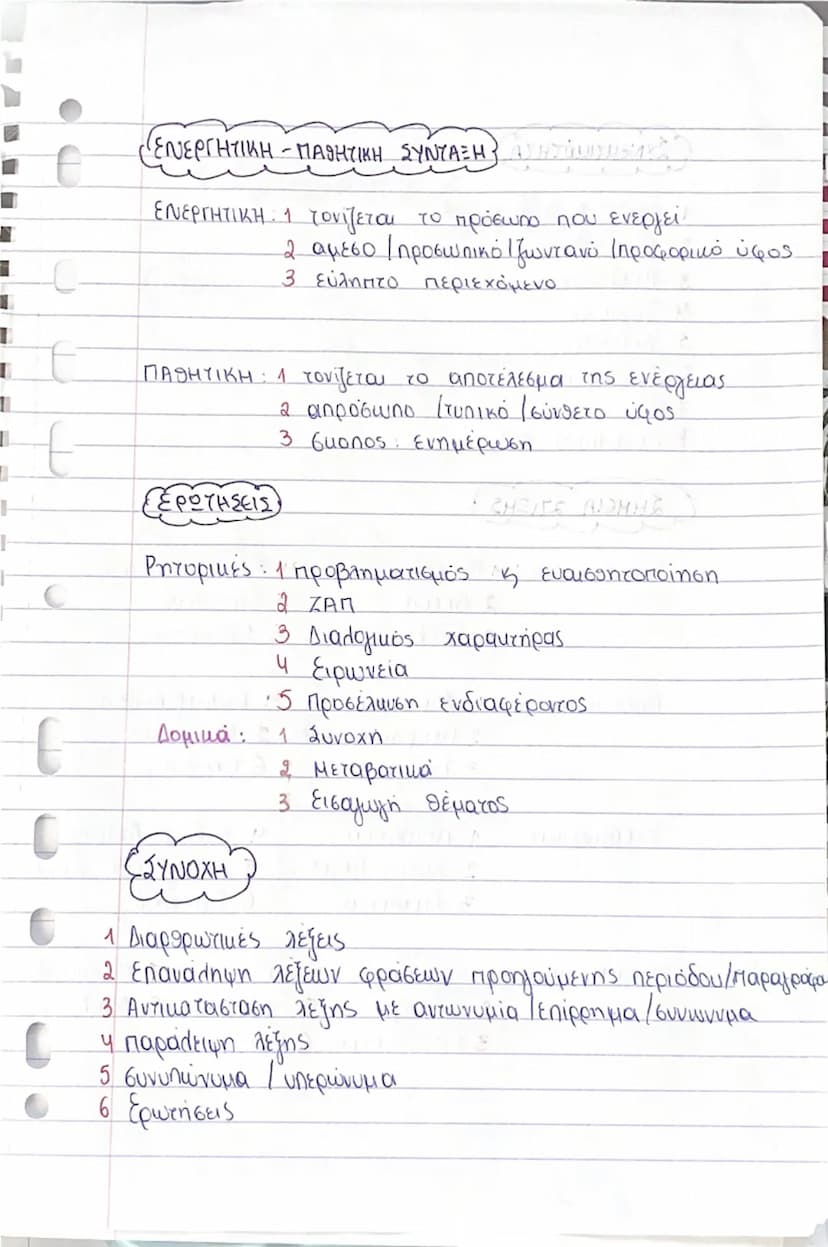 ΕΝΕΡΓΗΤΙΚΗ - ΠΑΘΗΤΙΚΗ ΣΥΝΤΑΞΗ
ΕΝΕΡΓΗΤΙΚΗ : 1 τονίζεται το πρόσωπο που ενεργεί
2 αμεσο / προσωπικό / ζωντανό / προφορικό ύφος
3 εύληπτο περιεχόμενο
ΠΑΘΗΤΙΚΗ : 1 τονίζεται το αποτέλεσμα της ενέργειας
2 απρόσωπο / τυπικό / σύνθετο ύφος
3 σκοπος : ενημέρωση
ΕΡΩΤΗΣΕΙΣ
Ρητορικές : 1 προβληματισμός ϗ ευαισθητοποίηση
2 ΖΑΠ
3 Διαλογικός χαρακτήρας
4 Ειρωνεία
5 Προσέλκυση ενδιαφέροντος
Δομικά : 1 Συνοχή
2 Μεταβατικά
3 Εισαγωγή θέματος
ΣΥΝΟΧΗ
1 Διαρθρωτικές λέξεις
2 Επανάληψη λέξεων φράσεων προηγούμενης περιόδου/παραγράφο
3 Αντικατασταση λέξης με αντωνυμία / επίρρημα / συνωνυμα
4 παράλειψη λέξης
5 συνυπώνυμα / υπερώνυμα
6 Ερωτήσεις